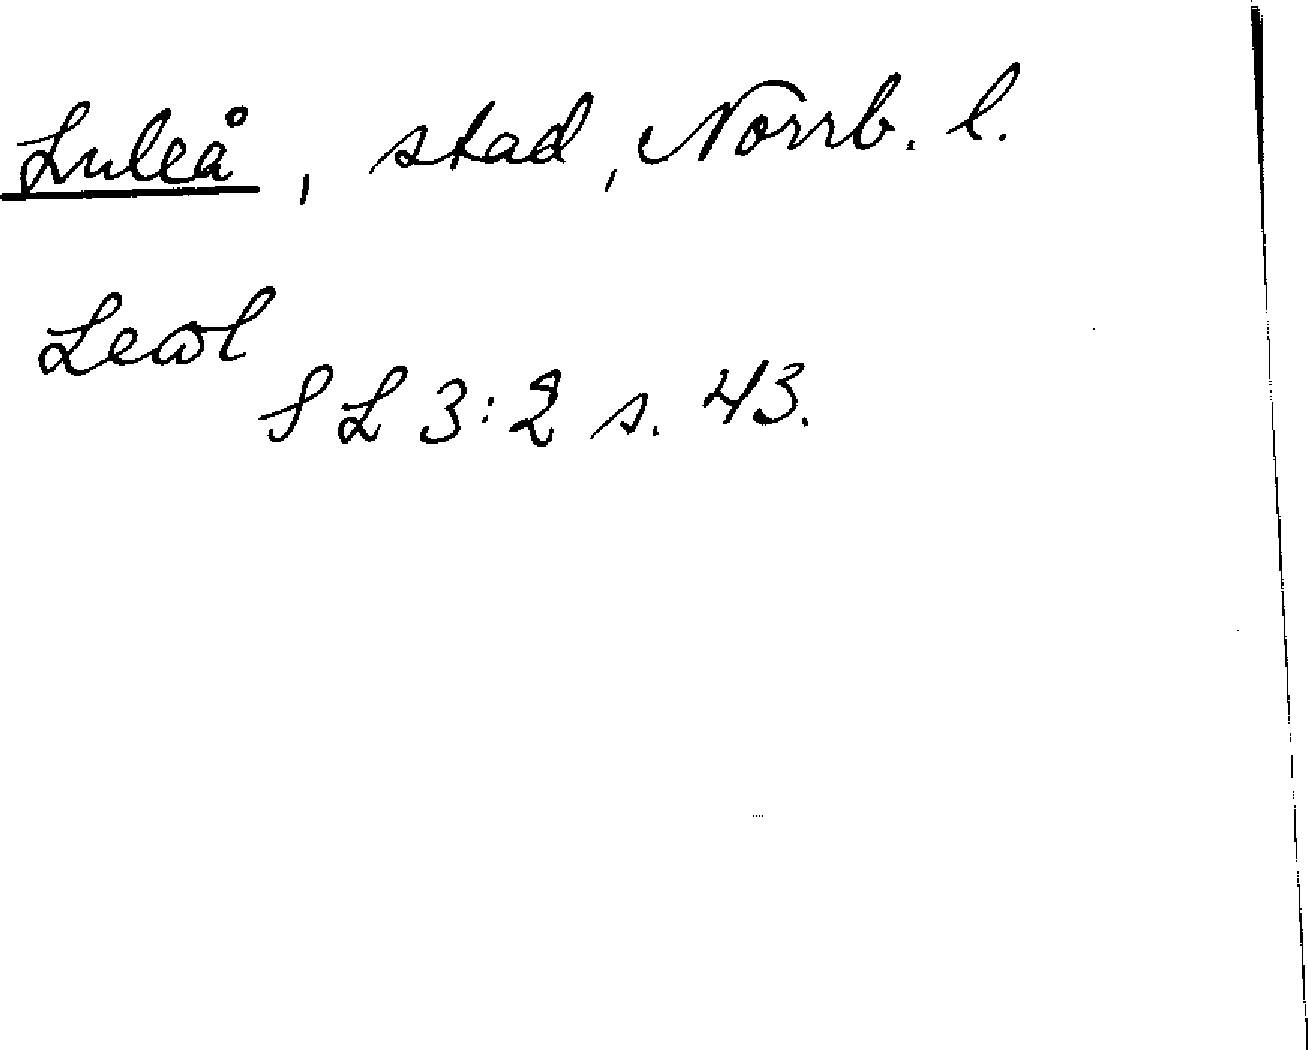 Luleå, stad, Norrb. l.
S L 3:2 s. 43.